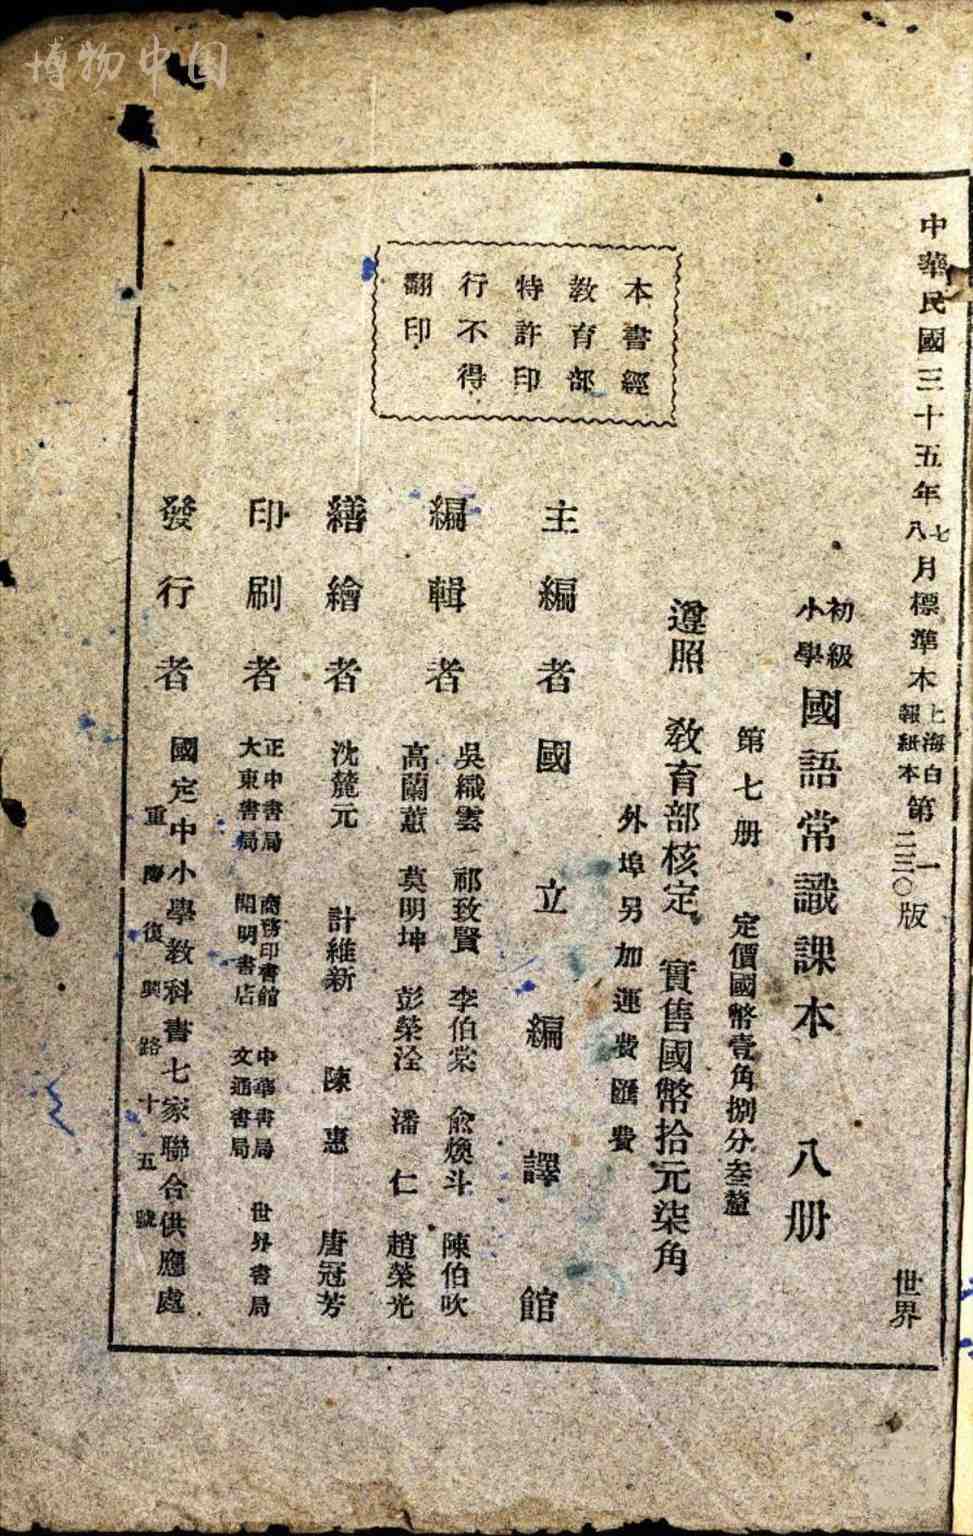 博物中国
中華民國三十五年七八月標準本上海白報紙本第一二三〇版
世界
初級小學國語常識課本 八册
第七册 定價國幣壹角捌分叁釐
遵照 教育部核定 實售國幣拾元柒角
外埠另加運費匯費
本書經
教育部
特許印
行不得
翻印
主編者國立編譯館
編輯者
吳織雲 祁致賢 李伯棠 俞煥斗 陳伯吹
高蘭薰 莫明坤 彭榮淦 潘仁 趙榮光
繕繪者 沈麓元 計維新 陳惠 唐冠芳
印刷者
正中書局 商務印書館 中華書局 世界書局
大東書局 開明書店 文通書局
發行者 國定中小學教科書七家聯合供應處
重慶復興路十五號